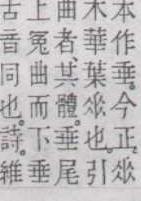 本作垂。今正。𠂹
木華葉𠂹也。引
曲者、其體。垂尾
上冤曲而下垂
古音同也。詩。維